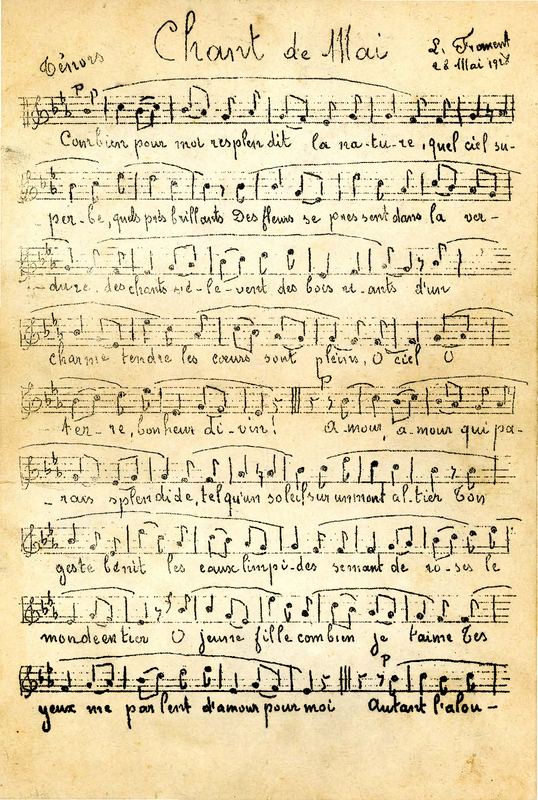 Chant de Mai
L. Froment
28 Mai 1928
Ténors
P
Combien pour moi resplendit la na-tu-re, quel ciel su-
-per-be, quels prés brillants Des fleurs se pressent dans la ver-
-dure, des chants s'é-le-vent des bois ri-ants d'un
charme tendre les cœurs sont pleins, O ciel O
P
ter-re, bonheur di-vin! A-mour, a-mour qui pa-
-rais splendide, tel qu'un soleil sur un mont al-tier Ton
geste bénit les eaux limpi-des semant de ro-ses le
monde entier O jeune fille combien je t'aime Tes
P
yeux me parlent d'amour pour moi Autant l'alou-